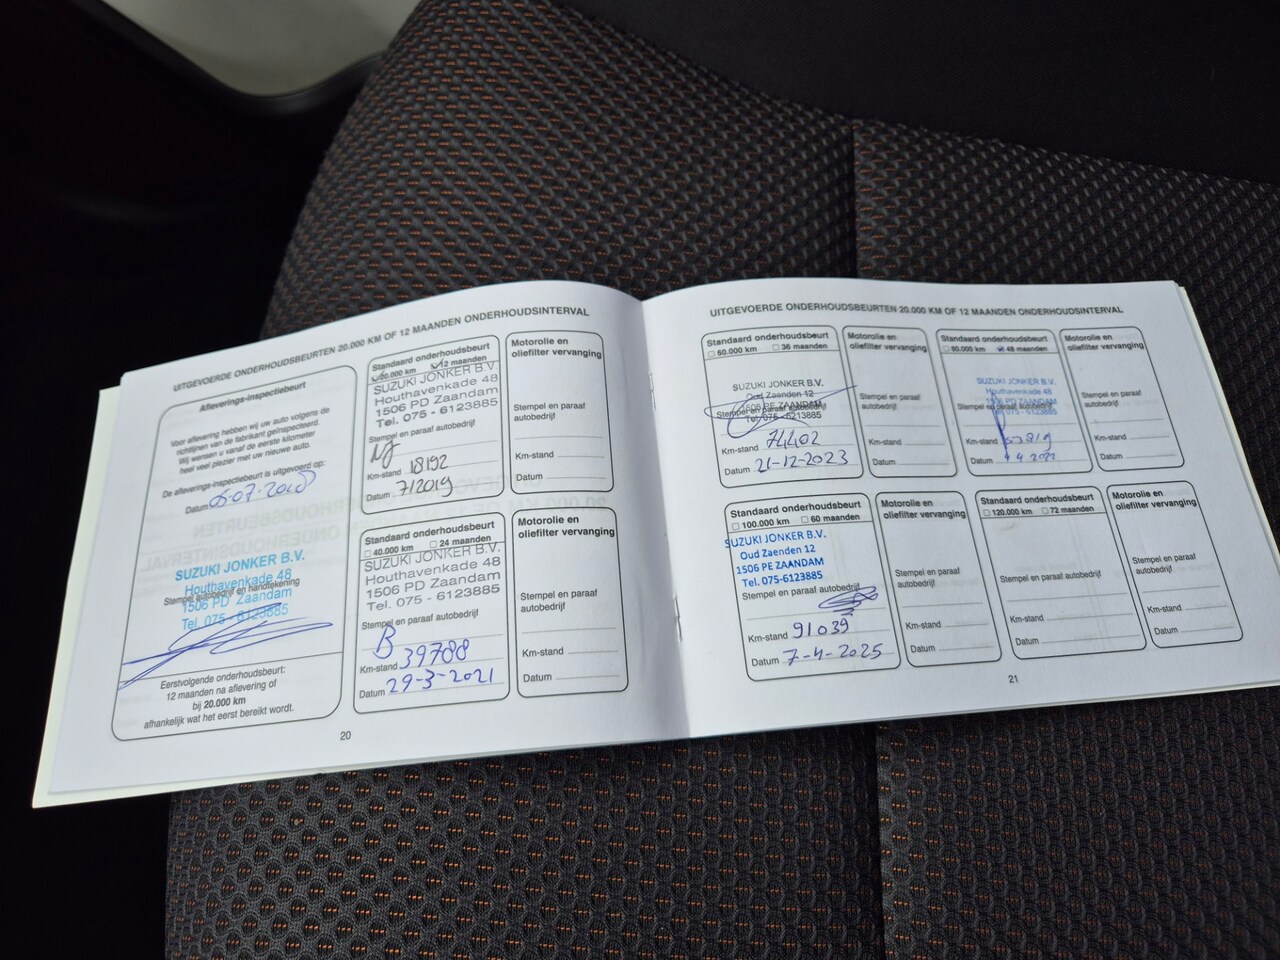 UITGEVOERDE ONDERHOUDSBEURTEN 20.000 KM OF 12 MAANDEN ONDERHOUDSINTERVAL
Afleverings-inspectiebeurt
Voor aflevering hebben wij uw auto volgens de
richtlijnen van de fabrikant geïnspecteerd.
Wij wensen u vanaf de eerste kilometer
heel veel plezier met uw nieuwe auto.
De afleverings-inspectiebeurt is uitgevoerd op:
Datum 05-07-2018
SUZUKI JONKER B.V.
Houthavenkade 48
Stempel autobedrijf en handtekening
1506 PD Zaandam
Tel. 075 - 6123885
Eerstvolgende onderhoudsbeurt:
12 maanden na aflevering of
bij 20.000 km
afhankelijk wat het eerst bereikt wordt.
Standaard onderhoudsbeurt
20.000 km 12 maanden
SUZUKI JONKER B.V.
Houthavenkade 48
1506 PD Zaandam
Tel. 075 - 6123885
Stempel en paraaf autobedrijf
Km-stand 18192
Datum 7/2019
Motorolie en
oliefilter vervanging
Stempel en paraaf
autobedrijf
Km-stand
Datum
Standaard onderhoudsbeurt
40.000 km 24 maanden
SUZUKI JONKER B.V.
Houthavenkade 48
1506 PD Zaandam
Tel. 075 - 6123885
Stempel en paraaf autobedrijf
B
Km-stand 39788
Datum 29-3-2021
Motorolie en
oliefilter vervanging
Stempel en paraaf
autobedrijf
Km-stand
Datum
20
UITGEVOERDE ONDERHOUDSBEURTEN 20.000 KM OF 12 MAANDEN ONDERHOUDSINTERVAL
Standaard onderhoudsbeurt
60.000 km 36 maanden
SUZUKI JONKER B.V.
Oud Zaenden 12
1506 PE ZAANDAM
Stempel en paraaf autobedrijf
Tel. 075-6213885
Km-stand 74402
Datum 21-12-2023
Motorolie en
oliefilter vervanging
Stempel en paraaf
autobedrijf
Km-stand
Datum
Standaard onderhoudsbeurt
80.000 km 48 maanden
SUZUKI JONKER B.V.
Houthavenkade 48
1506 PD ZAANDAM
Stempel en paraaf autobedrijf
Km-stand
Datum
Motorolie en
oliefilter vervanging
Stempel en paraaf
autobedrijf
Km-stand
Datum
Standaard onderhoudsbeurt
100.000 km 60 maanden
SUZUKI JONKER B.V.
Oud Zaenden 12
1506 PE ZAANDAM
Tel. 075-6123885
Stempel en paraaf autobedrijf
Km-stand 91039
Datum 7-4-2025
Motorolie en
oliefilter vervanging
Stempel en paraaf
autobedrijf
Km-stand
Datum
Standaard onderhoudsbeurt
120.000 km 72 maanden
Stempel en paraaf autobedrijf
Km-stand
Datum
Motorolie en
oliefilter vervanging
Stempel en paraaf
autobedrijf
Km-stand
Datum
21